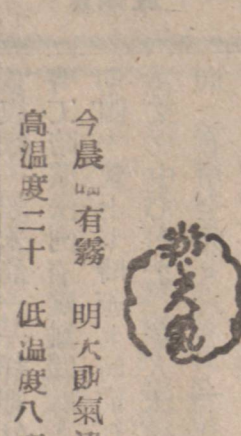 天氣
今晨 有霧 明天 氣
高温度二十 低温度八